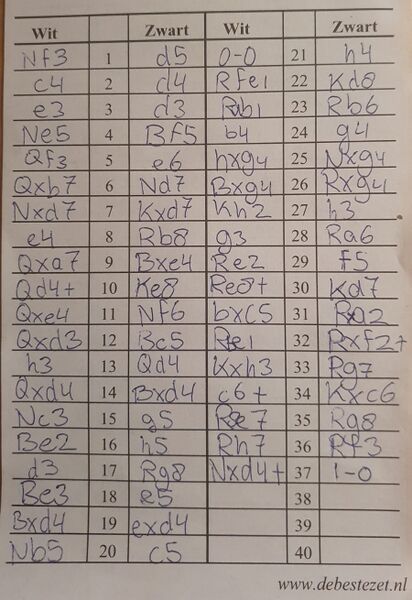 Wit Zwart Wit Zwart
Nf3 1 d5 0-0 21 h4
c4 2 d4 Rfe1 22 Kd8
e3 3 d3 Rab1 23 Rb6
Ne5 4 Bf5 b4 24 g4
Qf3 5 e6 hxg4 25 Nxg4
Qxb7 6 Nd7 Bxg4 26 Rxg4
Nxd7 7 Kxd7 Kh2 27 h3
e4 8 Rb8 g3 28 Ra6
Qxa7 9 Bxe4 Re2 29 f5
Qd4+ 10 Ke8 Re8+ 30 Kd7
Qxe4 11 Nf6 bxc5 31 Rxa2
Qxd3 12 Bc5 Re1 32 Rxf2+
h3 13 Qd4 Kxh3 33 Rg7
Qxd4 14 Bxd4 c6+ 34 Kxc6
Nc3 15 g5 Re7 35 Rg8
Be2 16 h5 Rh7 36 Rf3
d3 17 Rg8 Nxd4+ 37 1-0
Be3 18 e5 38
Bxd4 19 exd4 39
Nb5 20 c5 40
www.debestezet.nl